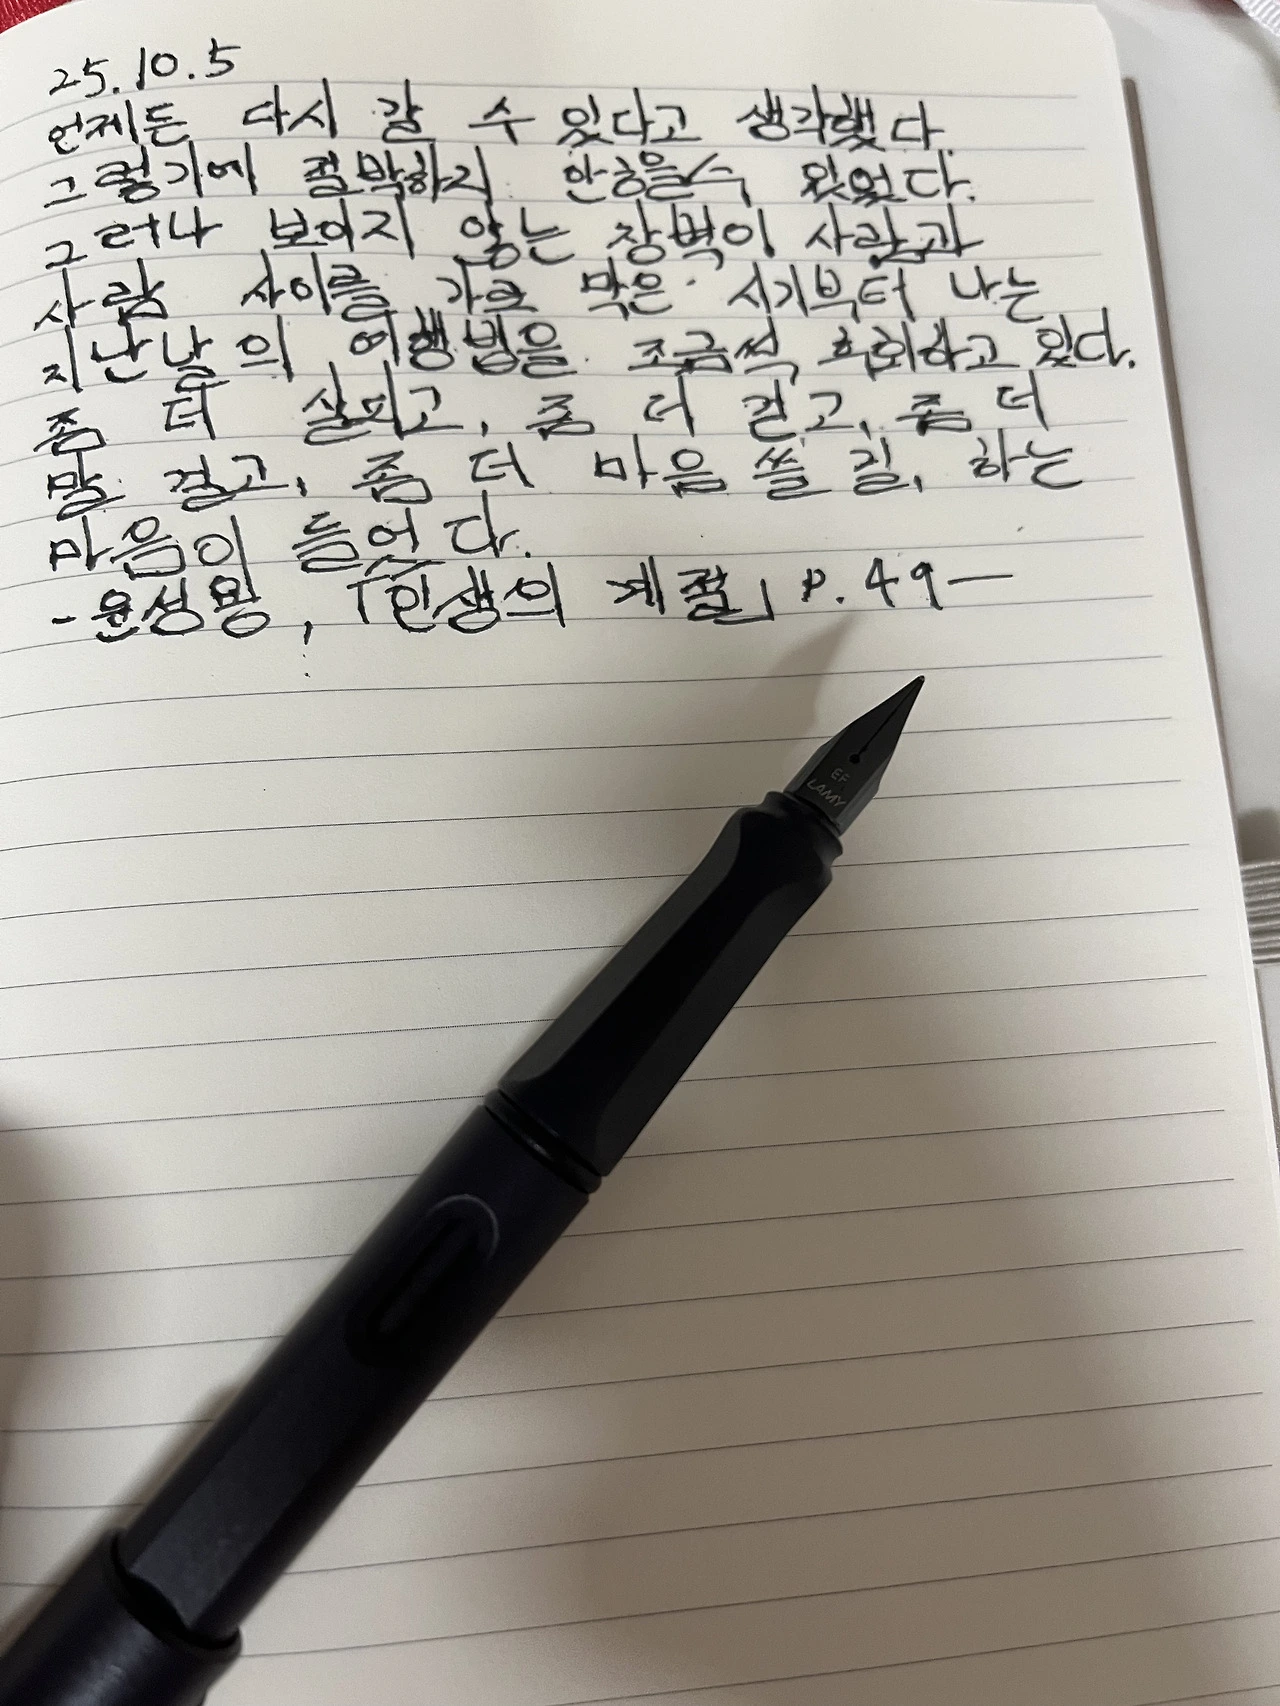 25.10.5
언제든 다시 갈 수 있다고 생각했다.
그렇기에 절박하지 않을 수 있었다.
그러나 보이지 않는 장벽이 사람과
사람 사이를 가로 막은 시기부터 나는
지난날의 여행법을 조금씩 후회하고 있다.
좀 더 살피고, 좀 더 걷고, 좀 더
말 걸고, 좀 더 마음 쓸 걸, 하는
마음이 들었다.
- 윤성용, 「인생의 계절」 p.49 —
EF
LAMY